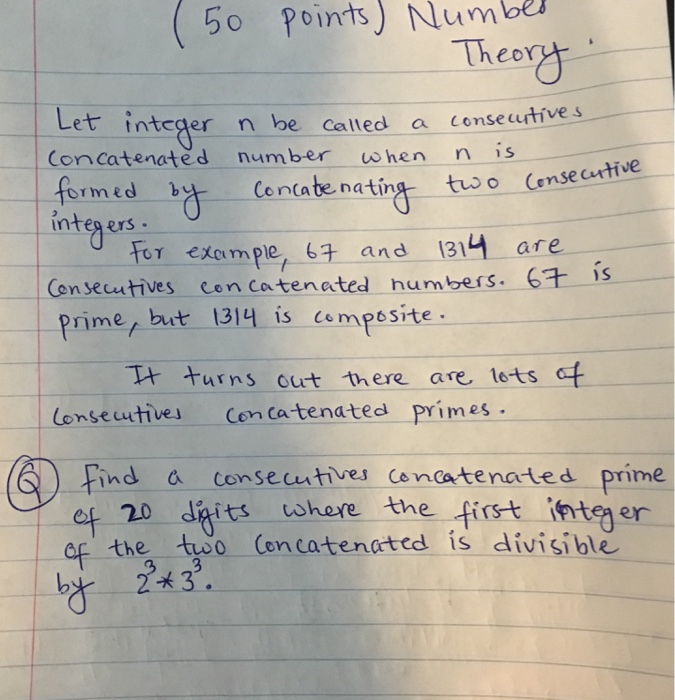 (50 points) Number
Theory.
Let integer n be called a consecutives
concatenated number when n is
formed by concatenating two consecutive
integers.
For example, 67 and 1314 are
consecutives concatenated numbers. 67 is
prime, but 1314 is composite.
It turns out there are lots of
consecutives concatenated primes.
Q Find a consecutives concatenated prime
of 20 digits where the first integer
of the two concatenated is divisible
by 2³*3³.